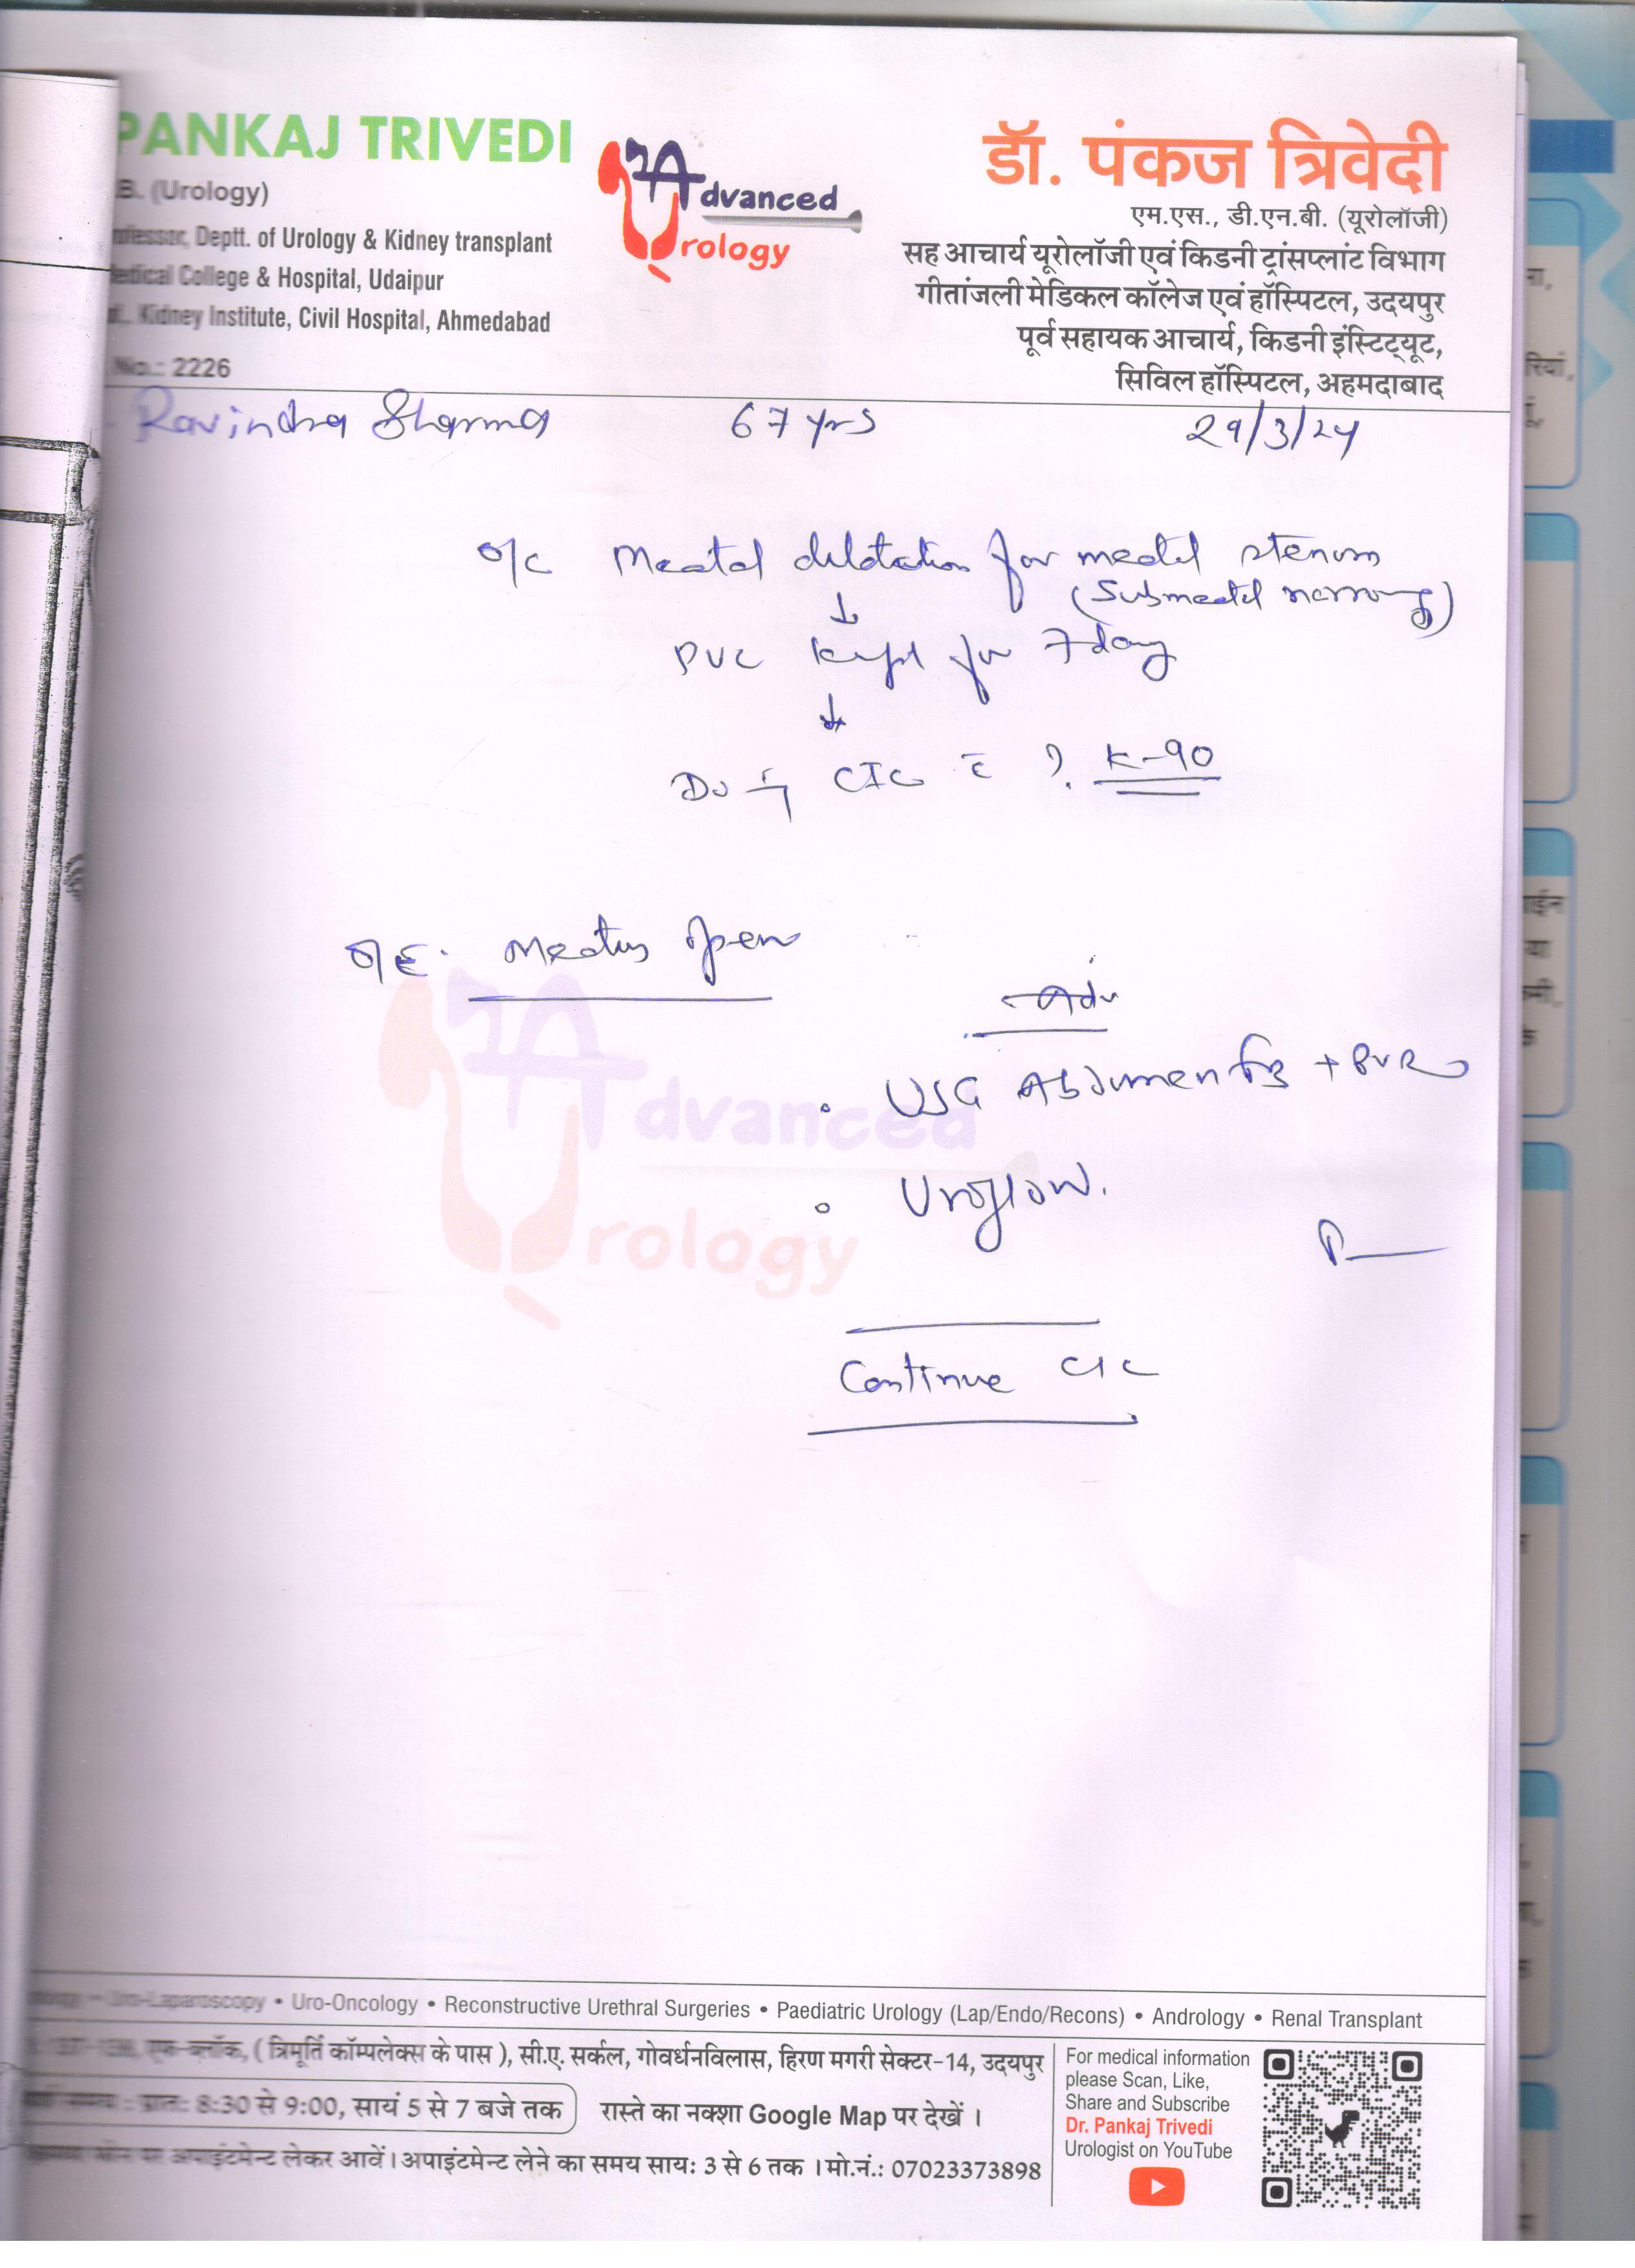 PANKAJ TRIVEDI
.B. (Urology)
Professor, Deptt. of Urology & Kidney transplant
Medical College & Hospital, Udaipur
Kidney Institute, Civil Hospital, Ahmedabad
No.: 2226
Advanced
Urology
डॉ. पंकज त्रिवेदी
एम.एस., डी.एन.बी. (यूरोलॉजी)
सह आचार्य यूरोलॉजी एवं किडनी ट्रांसप्लांट विभाग
गीतांजली मेडिकल कॉलेज एवं हॉस्पिटल, उदयपुर
पूर्व सहायक आचार्य, किडनी इंस्टिट्यूट,
सिविल हॉस्पिटल, अहमदाबाद
Ravindra Sharma 67 yrs 29/3/24
Meatal dilatation for meatal stenosis
(Submeatal narrowing)
PUC kept for 7 day
↓
Doing CIC c̄ ? K-90
O/E. Meatus open
Adv
USG Abdomen + PVR
Uroflow.
Continue CIC
Advanced
Urology
Uro-Laparoscopy • Uro-Oncology • Reconstructive Urethral Surgeries • Paediatric Urology (Lap/Endo/Recons) • Andrology • Renal Transplant
एफ-ब्लॉक, ( त्रिमूर्ति कॉम्पलेक्स के पास ), सी.ए. सर्कल, गोवर्धनविलास, हिरण मगरी सेक्टर-14, उदयपुर
समय : प्रातः 8:30 से 9:00, सायं 5 से 7 बजे तक रास्ते का नक्शा Google Map पर देखें ।
पर अपाइंटमेन्ट लेकर आवें। अपाइंटमेन्ट लेने का समय सायः 3 से 6 तक । मो.नं.: 07023373898
For medical information
please Scan, Like,
Share and Subscribe
Dr. Pankaj Trivedi
Urologist on YouTube